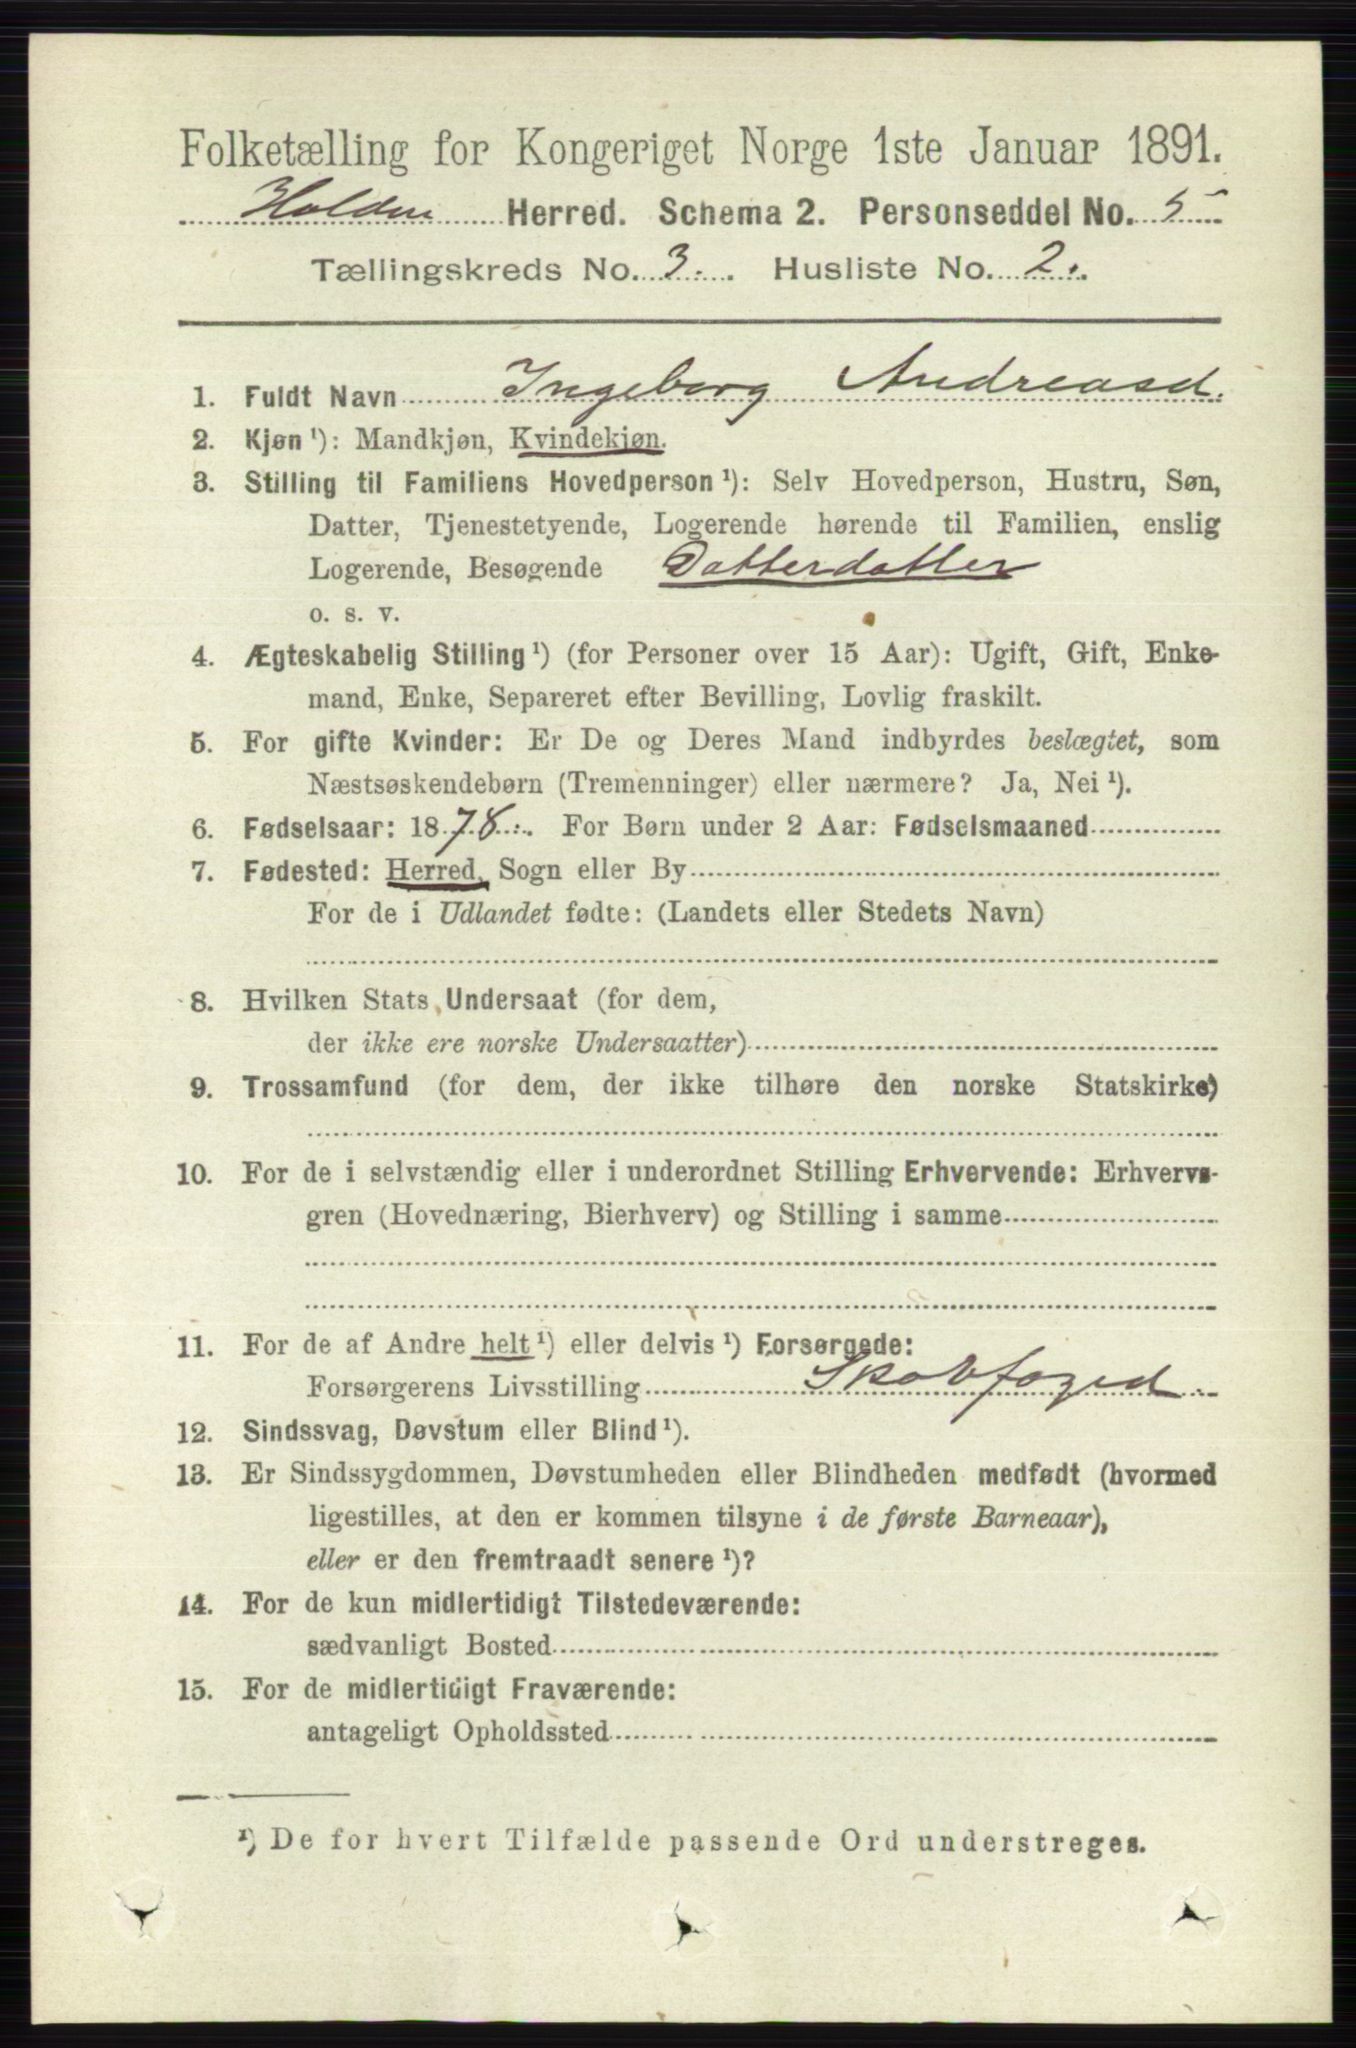 Folketælling for Kongeriget Norge 1ste Januar 1891.
Holden Herred. Schema 2. Personseddel No. 5
Tællingskreds No. 3. Husliste No. 2.
1. Fuldt Navn Ingeborg Andreasd.
2. Kjøn ¹): Mandkjøn, Kvindekjøn.
3. Stilling til Familiens Hovedperson ¹): Selv Hovedperson, Hustru, Søn,
Datter, Tjenestetyende, Logerende hørende til Familien, enslig
Logerende, Besøgende Datterdatter
o. s. v.
4. Ægteskabelig Stilling ¹) (for Personer over 15 Aar): Ugift, Gift, Enke-
mand, Enke, Separeret efter Bevilling, Lovlig fraskilt.
5. For gifte Kvinder: Er De og Deres Mand indbyrdes beslægtet, som
Næstsøskendebørn (Tremenninger) eller nærmere? Ja, Nei ¹).
6. Fødselsaar: 1878. For Børn under 2 Aar: Fødselsmaaned
7. Fødested: Herred, Sogn eller By
For de i Udlandet fødte: (Landets eller Stedets Navn)
8. Hvilken Stats Undersaat (for dem,
der ikke ere norske Undersaatter)
9. Trossamfund (for dem, der ikke tilhøre den norske Statskirke)
10. For de i selvstændig eller i underordnet Stilling Erhvervende: Erhvervs-
gren (Hovednæring, Bierhverv) og Stilling i samme
11. For de af Andre helt ¹) eller delvis ¹) Forsørgede:
Forsørgerens Livsstilling Skovfoged
12. Sindssvag, Døvstum eller Blind ¹).
13. Er Sindssygdommen, Døvstumheden eller Blindheden medfødt (hvormed
ligestilles, at den er kommen tilsyne i de første Barneaar),
eller er den fremtraadt senere ¹)?
14. For de kun midlertidigt Tilstedeværende:
sædvanligt Bosted
15. For de midlertidigt Fraværende:
antageligt Opholdssted
¹) De for hvert Tilfælde passende Ord understreges.